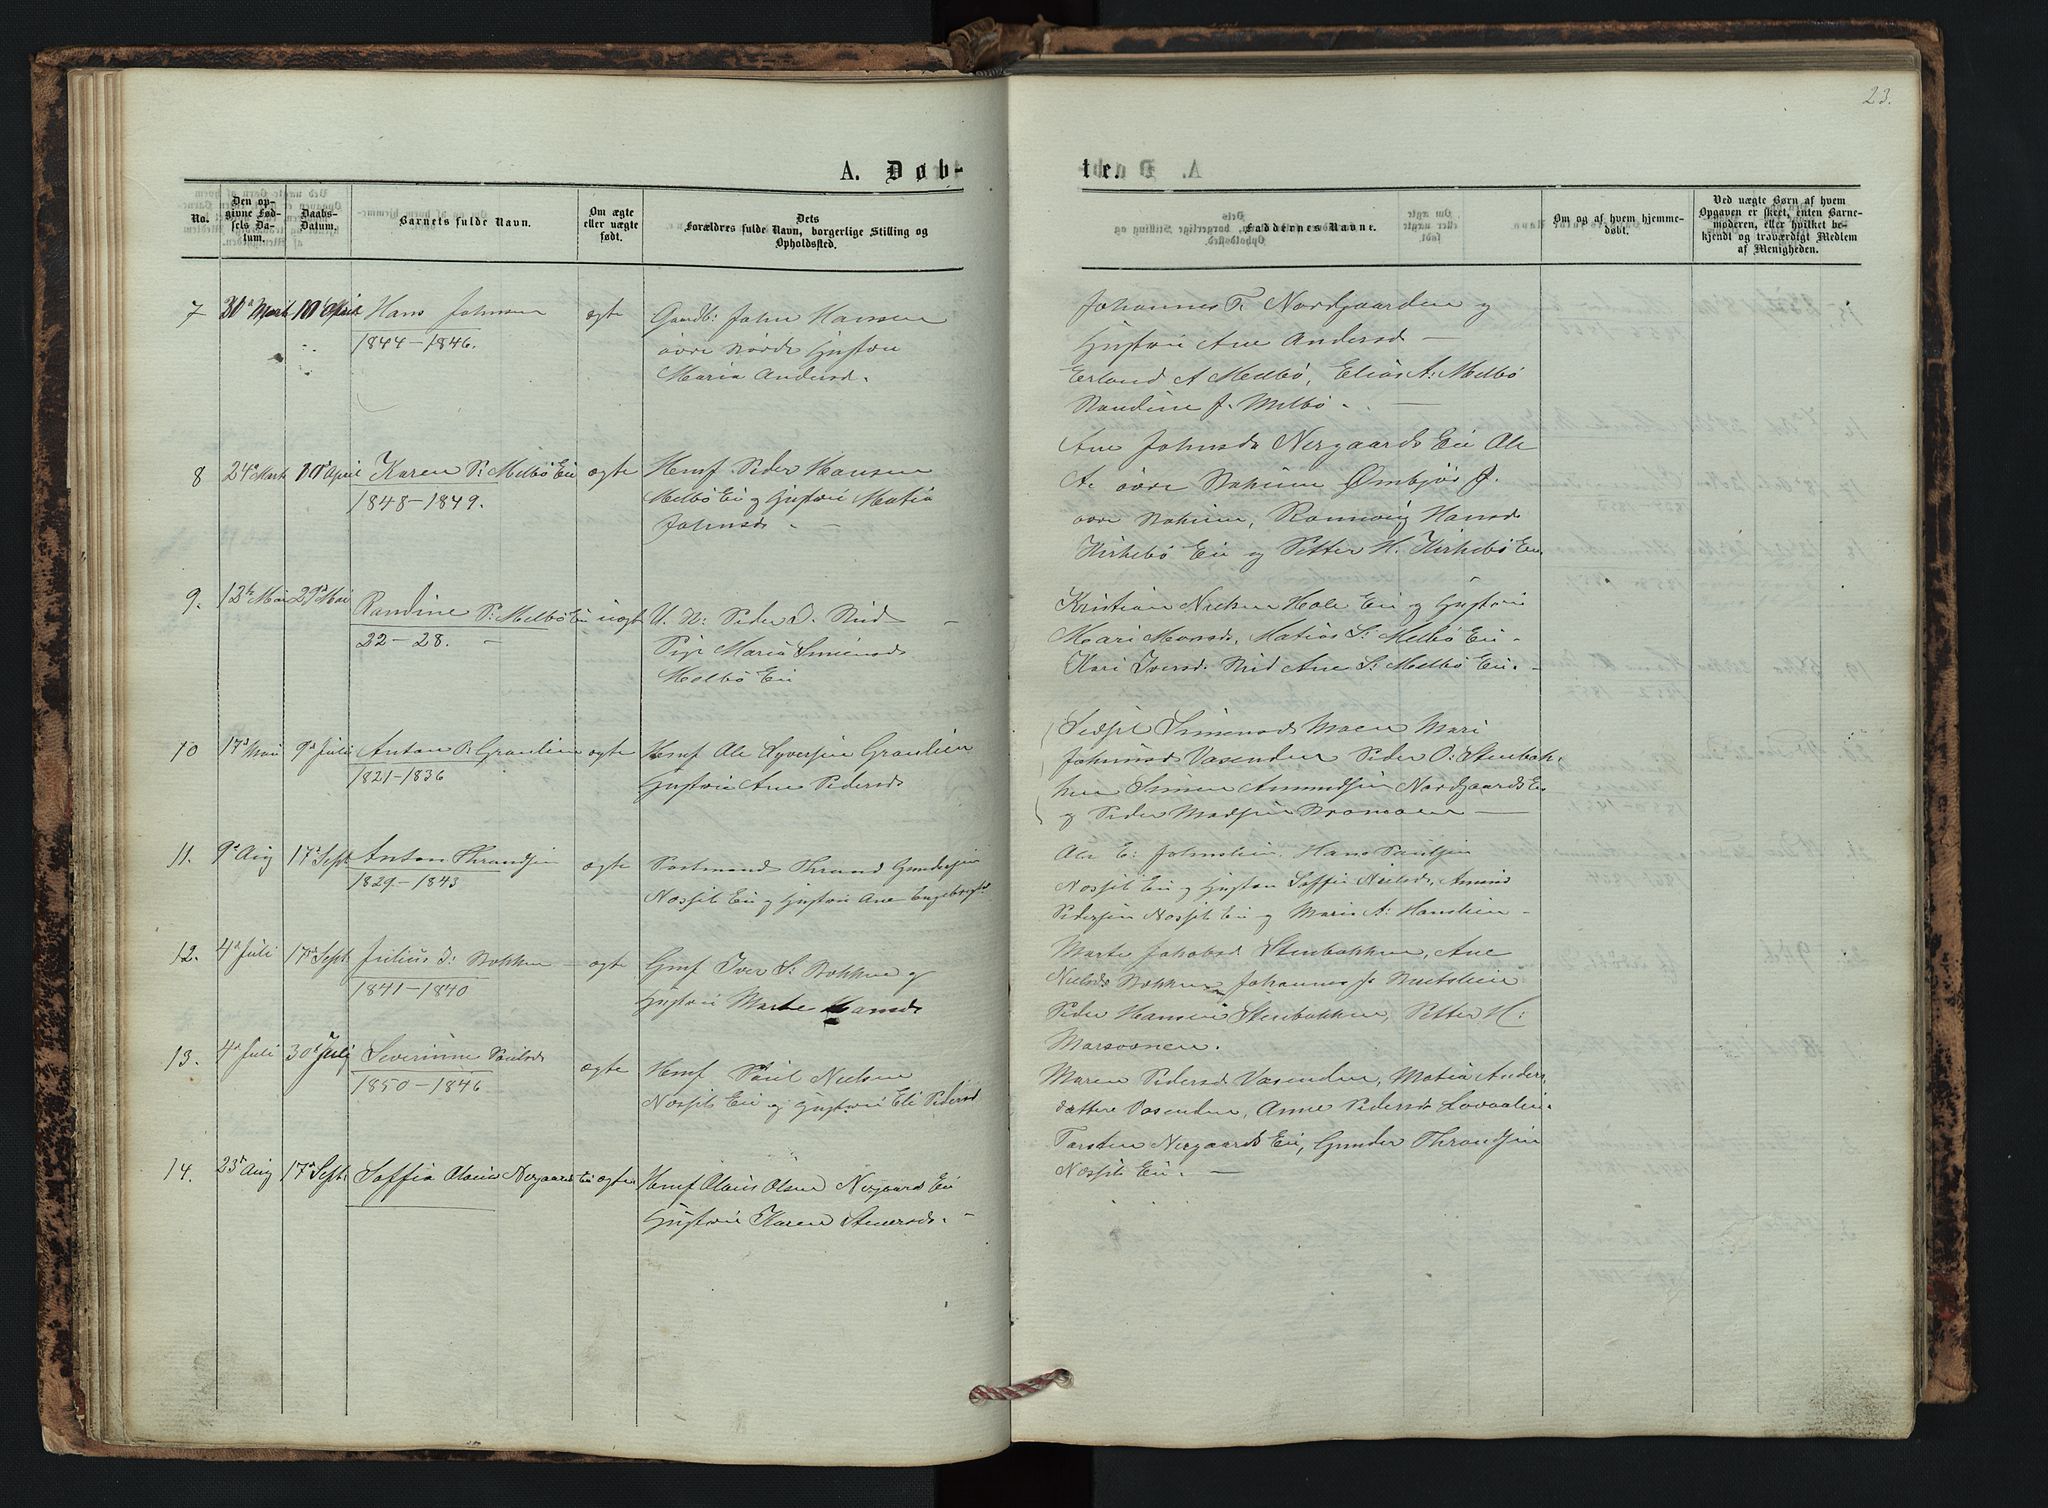 23.
A. Døb-
te.
No.
Den op-
givne Fød-
sels Da-
tum.
Daabs-
Datum.
Barnets fulde Navn.
Om ægte
eller uægte
født.
Dets
Forældres fulde Navn, borgerlige Stilling og
Opholdssted.
Faddernes Navne.
Om og af hvem hjemme-
døbt.
Ved uægte Børn af hvem
Opgaven er skeet, enten Barne-
moderen, eller hvilket be-
kjendt og troværdigt Medlem
af Menigheden.
7 30d Marts 10d April Hans Johnsen ægte Gaardb: John Hansen
1844-1846.
øvre Hustru
Maria Andersd.
Johannes T. Nordgaarden og
Hustru Ane Andersd
Erland A Melbø, Elias A: Melbø
Randine J. Melbø.
8 24d Marts 10d April Karen P: Melbø Ei ægte Hmf. Peder Hansen
1848-1849.
Melbø Ei og Hustru Matia
Johnsd.
Ane Johnsd Nergaards Ei Ole
A. øvre J.
øvre Hansd
Kirkebø Ei og Petter H. Kirkebø Ei
9. 13de Mai 29de Mai Randine P: Melbø Ei uægte U. K: Peder D.
22-28.
Pige Maria Simensd
Melbø Ei
Kristian Nielsen Hole Ei og Hustru
Mari Monsd, Matias S: Melbø Ei
Kari Iversd. Ane S: Melbø Ei.
10 17d Mai 9d Juli Anton O: Graulien ægte Hmf Ole Syversen Graulien
1821-1836
Hustru Ane Pedersd
Sidsel Simensd Moen Mari
Johnsd Vasenden Peder O: Stenbak-
ken Simen Amundsen Nordgaards Ei
og Peder Madsen
11. 9d Aug 17d Sept. Anton Thrandsen ægte Thrand Gundersen
1829-1843
Ei og Hustru Ane Engebregtsd
Ole E: Johnslien, Hans Paulsen
Ei og Hustru Soffie Nielsd, Amund
Pedersen Ei og Maria A: Hanslien
12. 4d Juli 17d Sept. Julius I: Bakken ægte Gmf Iver S: Bakken og
1841-1840
Hustru Marte Hansd
Marte Jakobsd Stenbakken, Ane
Nielsd Bakken Johannes J.
Peder Hansen Stenbakken, Petter H:
13. 4d Juli 30d Juli Severinne Paulsd ægte Hmf Paul Nielsen
1850-1846
Ei og Hustru Eli Pedersd
Maren Pedersd Vasenden, Matia Anders-
dattere Vasenden, Anne Pedersd
Torsten Nergaards Ei, Gunder Thrandsen
Ei.
14. 23d Aug 17d Sept. Soffia Olaus Nergaards Ei ægte Hmf Olaus Olsen Nergaards Ei
Hustru Karen